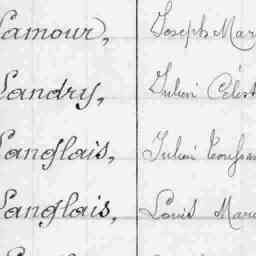 Lamour, Joseph Mar
Landry, Julien Célest
Langlais, Julien Toussa
Langlais, Louis Marc